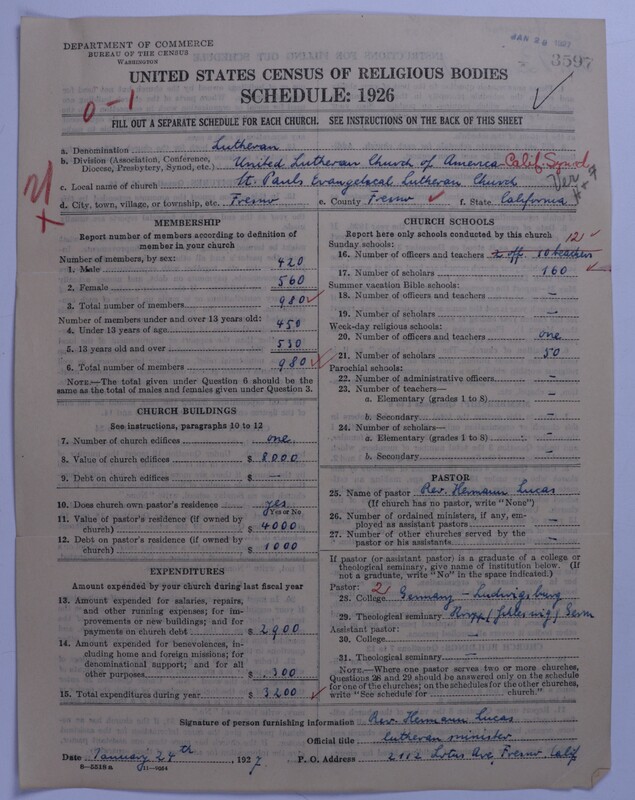 DEPARTMENT OF COMMERCE
BUREAU OF THE CENSUS
WASHINGTON
JAN 28 1927
3597
UNITED STATES CENSUS OF RELIGIOUS BODIES
SCHEDULE: 1926
0-1
FILL OUT A SEPARATE SCHEDULE FOR EACH CHURCH. SEE INSTRUCTIONS ON THE BACK OF THIS SHEET
a. Denomination Lutheran
b. Division (Association, Conference, Diocese, Presbytery, Synod, etc.) United Lutheran Church of America Calif. Synod
c. Local name of church St. Pauls Evangelocal Lutheran Church
Ver
d. City, town, village, or township, etc. Fresno e. County Fresno f. State California
MEMBERSHIP
Report number of members according to definition of
member in your church
Number of members, by sex:
1. Male 420
2. Female 560
3. Total number of members 980
Number of members under and over 13 years old:
4. Under 13 years of age 450
5. 13 years old and over 530
6. Total number of members 980
NOTE.—The total given under Question 6 should be
same as the total of males and females given under Question 3.
CHURCH BUILDINGS
See instructions, paragraphs 10 to 12
7. Number of church edifices one
8. Value of church edifices $ 8000
9. Debt on church edifices $ —
10. Does church own pastor's residence yes
Yes or No
11. Value of pastor's residence (if owned by
church) $ 4000
12. Debt on pastor's residence (if owned by
church) $ 1000
EXPENDITURES
Amount expended by your church during last fiscal year
13. Amount expended for salaries, repairs,
and other running expenses; for im-
provements or new buildings; and for
payments on church debt $ 2900
14. Amount expended for benevolences, in-
cluding home and foreign missions; for
denominational support; and for all
other purposes $ 300
15. Total expenditures during year $ 3200
CHURCH SCHOOLS
Report here only schools conducted by this church
Sunday schools: 12
16. Number of officers and teachers 2 off. 10 teachers
17. Number of scholars 160
Summer vacation Bible schools:
18. Number of officers and teachers —
19. Number of scholars —
Week-day religious schools:
20. Number of officers and teachers one
21. Number of scholars 50
Parochial schools:
22. Number of administrative officers —
23. Number of teachers—
a. Elementary (grades 1 to 8) —
b. Secondary —
24. Number of scholars—
a. Elementary (grades 1 to 8) —
b. Secondary —
PASTOR
25. Name of pastor Rev. Hermann Lucas
(If church has no pastor, write "None")
26. Number of ordained ministers, if any, em-
ployed as assistant pastors —
27. Number of other churches served by the
pastor or his assistants —
If pastor (or assistant pastor) is a graduate of a college or
theological seminary, give name of institution below. (If
not a graduate, write "No" in the space indicated.)
Pastor: 2
28. College Germany - Ludwigsburg
29. Theological seminary Kropp/Schleswig/Germ
Assistant pastor:
30. College —
31. Theological seminary —
NOTE.—Where one pastor serves two or more churches,
Questions 28 and 29 should be answered only on the schedule
for one of the churches; on the schedules for the other churches,
write "See schedule for church."
Signature of person furnishing information Rev. Hermann Lucas
Official title lutheran minister
Date January 24th, 1927 P. O. Address 2112 Lotus Ave Fresno, Calif
8—5518a 11—9064